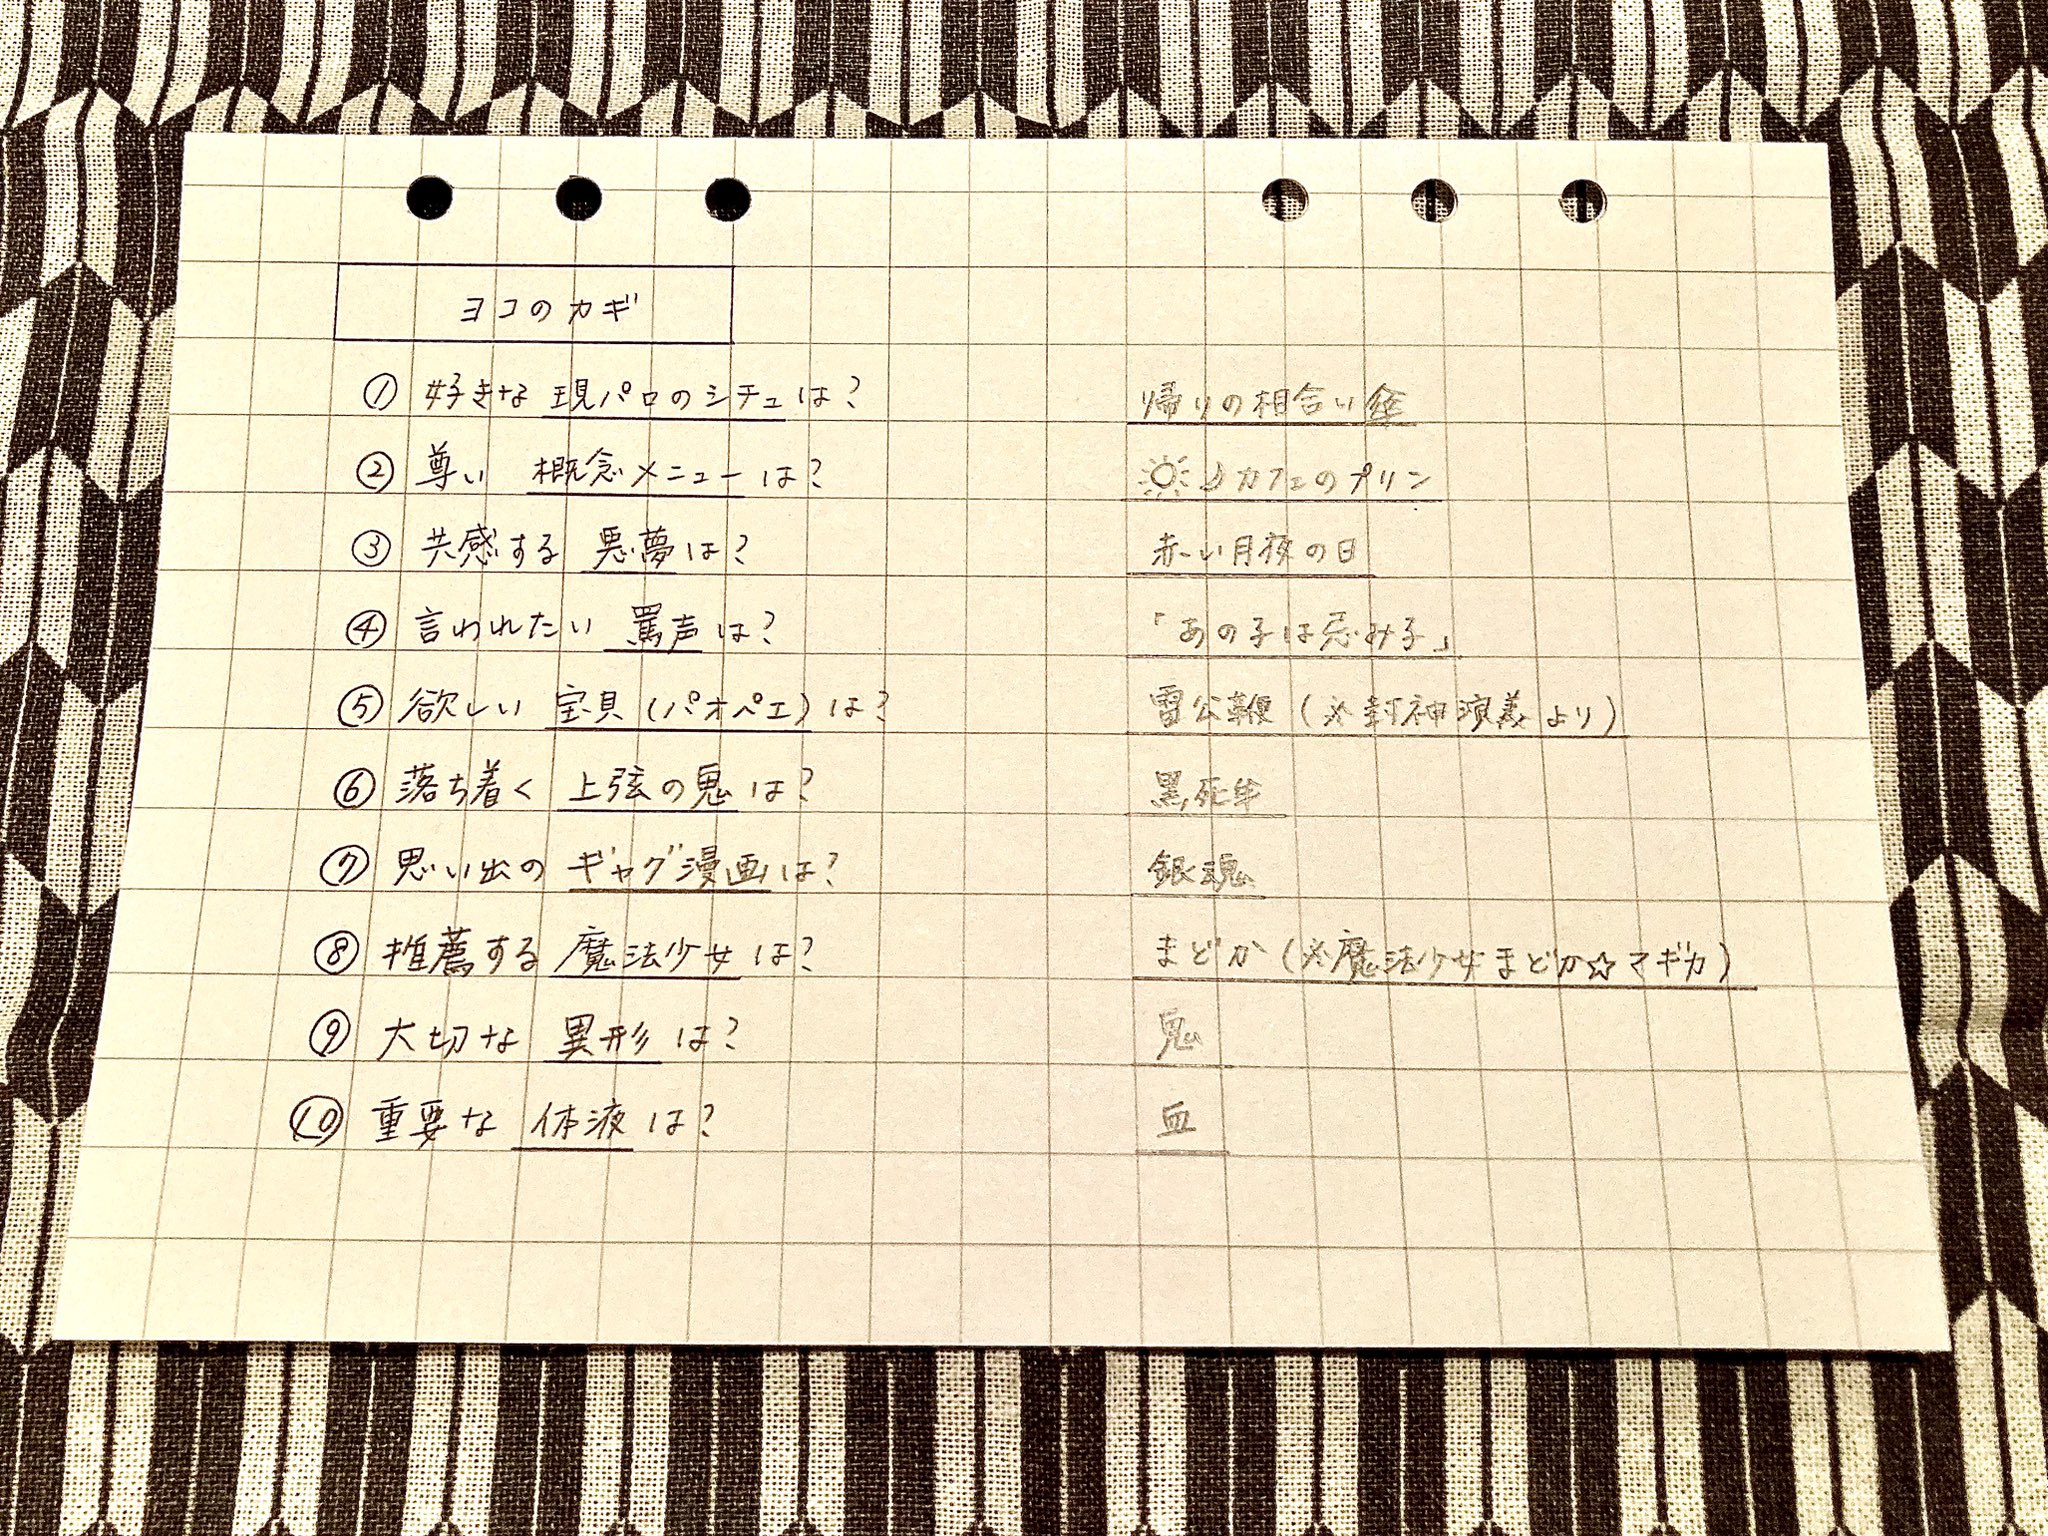 ヨコのカギ
① 好きな 現パロのシチュは? 帰りの相合い傘
② 尊い 概念メニューは? ☀☽カフェのプリン
③ 共感する 悪夢は? 赤い月夜の日
④ 言われたい 罵声は? 「あの子は忌み子」
⑤ 欲しい 宝貝(パオペエ)は? 雷公鞭(※封神演義より)
⑥ 落ち着く 上弦の鬼は? 黒死牟
⑦ 思い出の ギャグ漫画は? 銀魂
⑧ 推薦する 魔法少女は? まどか(※魔法少女まどか☆マギカ)
⑨ 大切な 異形は? 鬼
⑩ 重要な 体液は? 血